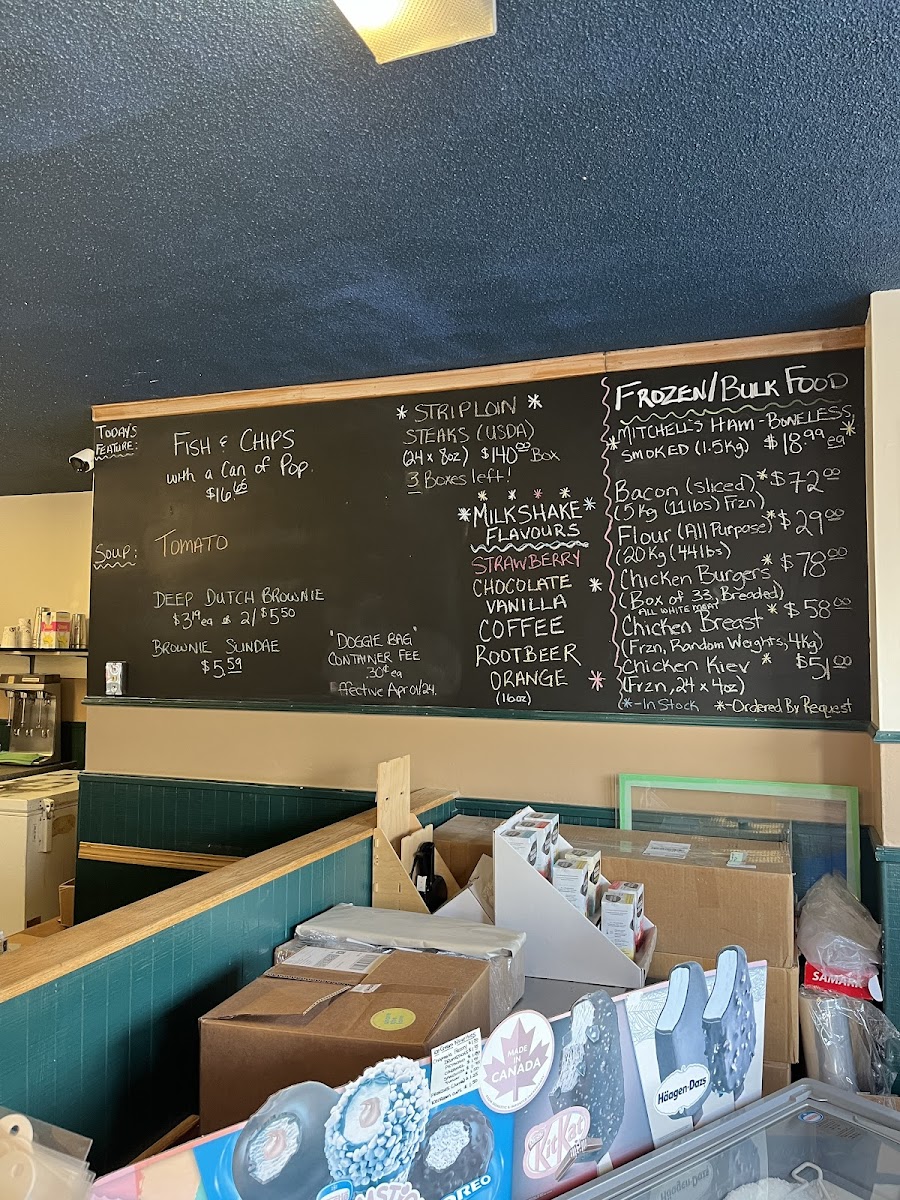 TODAY'S
FEATURE:
FISH & CHIPS
with a Can of Pop.
$16.65
SOUP:
TOMATO
DEEP DUTCH BROWNIE
$3.19 ea or 2/$5.50
BROWNIE SUNDAE
$5.59
"DOGGIE BAG"
CONTAINER FEE
.30¢ ea
Effective Apr 01/24.
* STRIPLOIN *
STEAKS (USDA)
(24 x 8oz) $140.00 Box
3 Boxes left!
* MILKSHAKE *
FLAVOURS
STRAWBERRY
CHOCOLATE *
VANILLA
COFFEE
ROOTBEER
ORANGE *
(16oz)
FROZEN/BULK FOOD
MITCHELL'S HAM - BONELESS,
* SMOKED (1.5kg) $18.99 ea *
Bacon (sliced) * $72.00
(5kg (11lbs) Frzn)
Flour (All Purpose) * $29.00
(20Kg (44lbs)
Chicken Burgers * $78.00
(Box of 33, Breaded)
ALL WHITE MEAT
Chicken Breast * $58.00
(Frzn, Random Weights, 4kg)
Chicken Kiev * $51.00
(Frzn, 24 x 4oz)
(*-In Stock *-Ordered By Request
SAMAR
MADE
IN
CANADA
KitKat
Häagen-Dazs
OREO
Häagen-Dazs